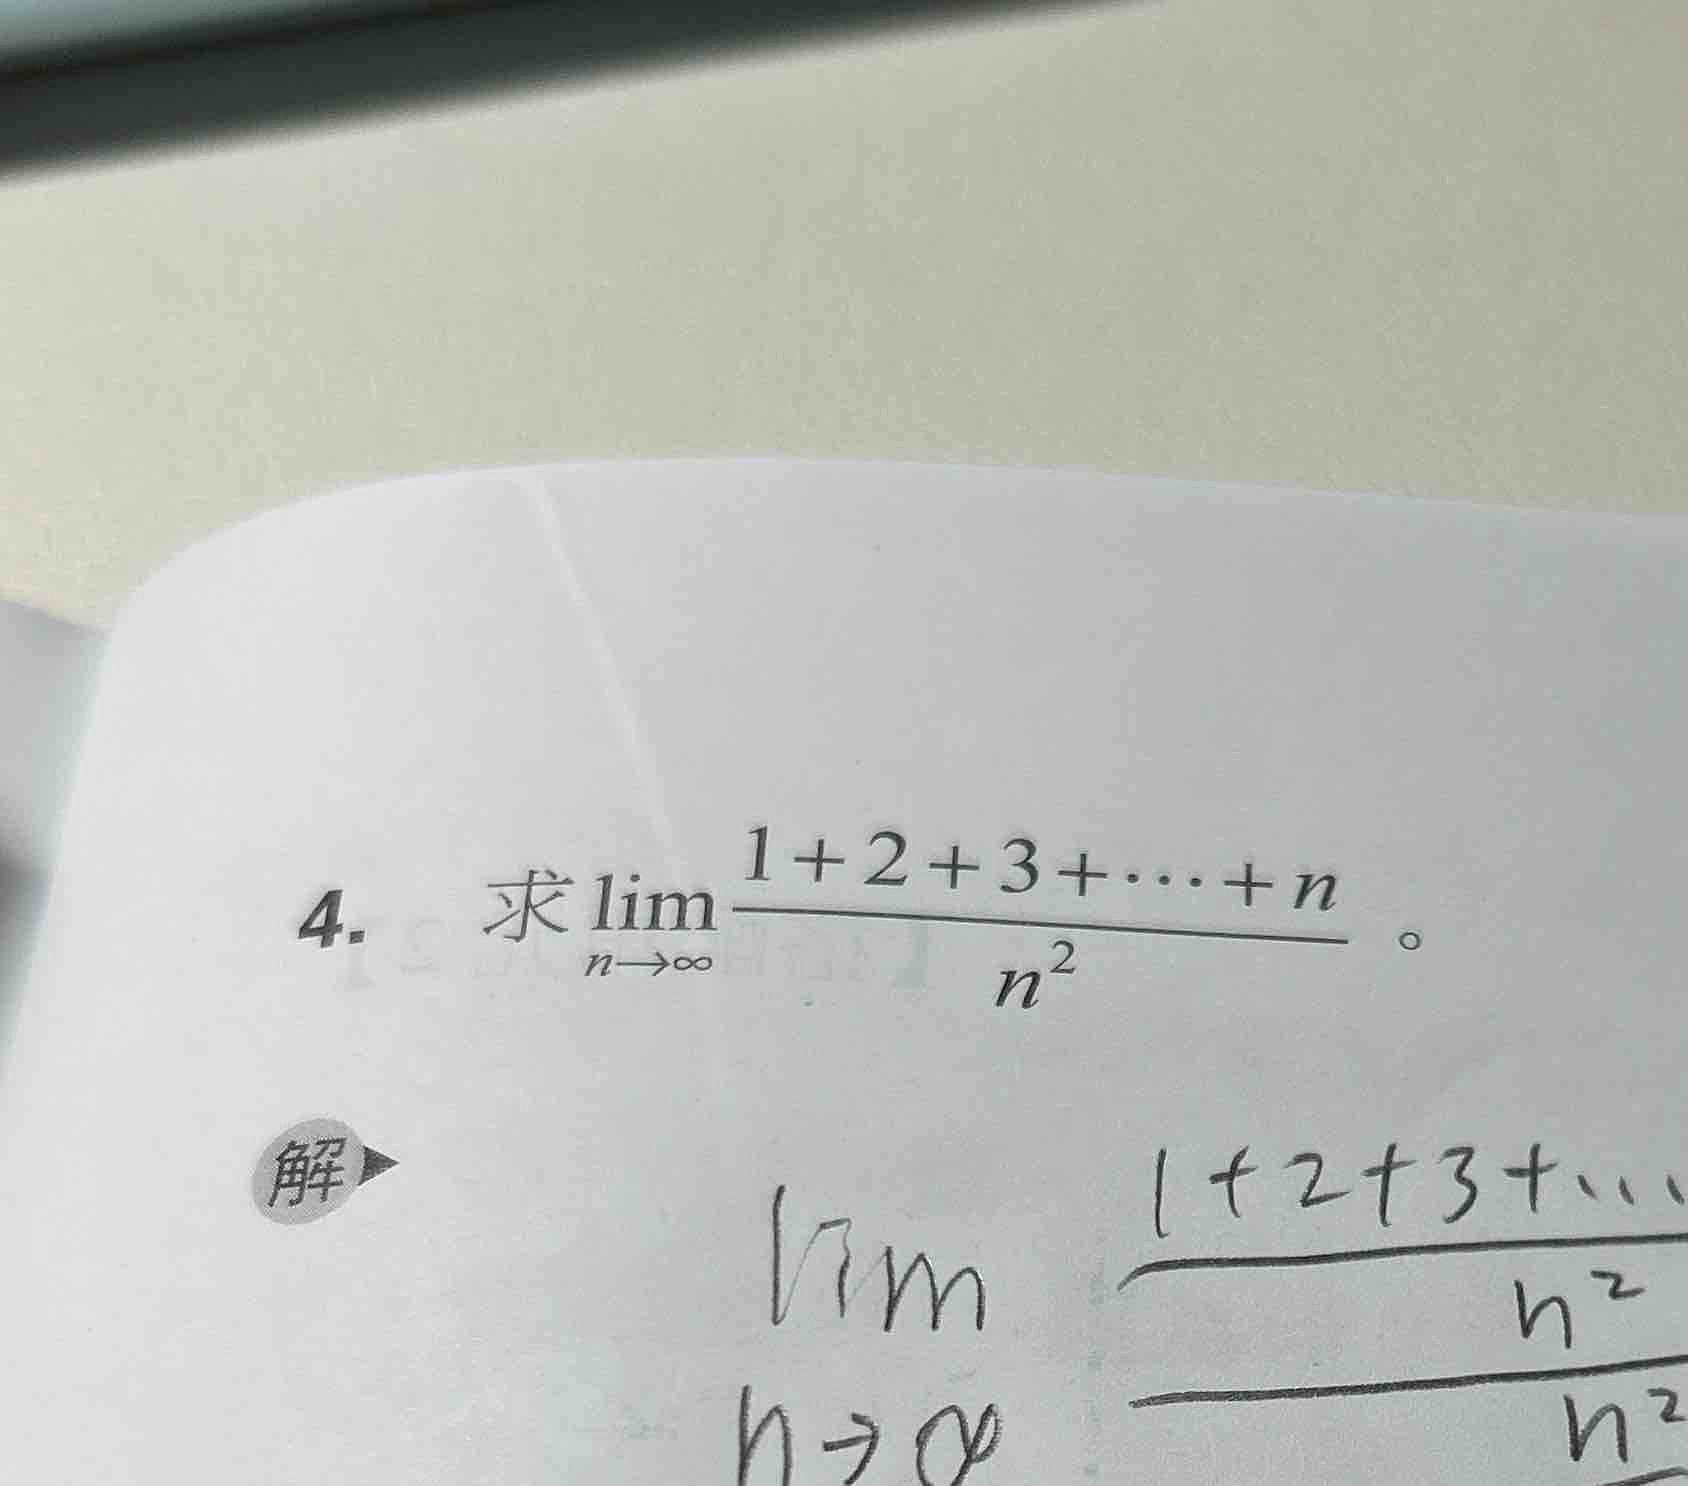 4. 求 lim n→∞ (1+2+3+⋯+n)/n² 。
解
lim 1+2+3+...
n²
n→∞ n²